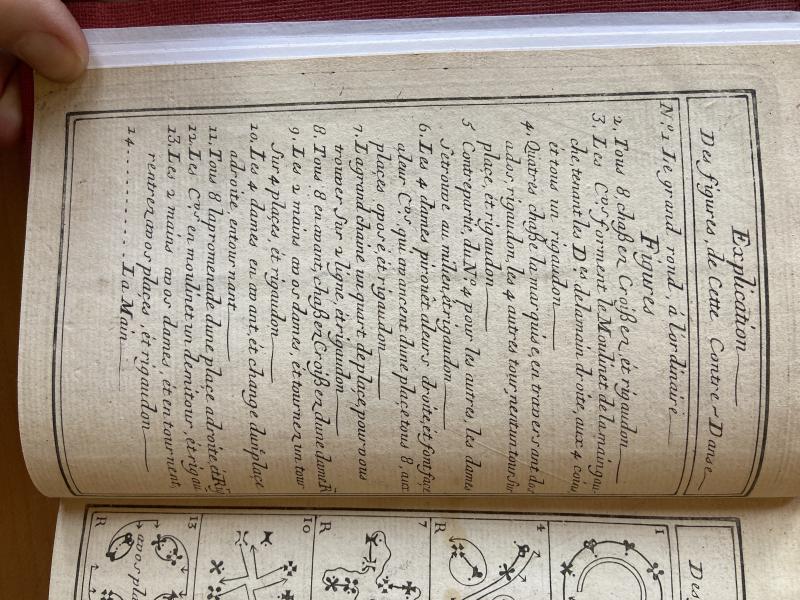 Explication
Des figures, de Cette Contre-Danse
N.º1. Le grand rond, a lordinaire
Figures
2. Tous 8 chaßez Croißez, et rigaudon
3. Les C.rs forment le Moulinet de la main gau-
che, tenant les D.es de la main droite, aux 4 coins
et tous un rigaudon
4. Quatres chaße la marquise, en traversant dos
a dos, rigaudon, les 4 autres tournent un tour sur
place, et rigaudon
5 Contrepartie, du Nº 4 pour les autres, les dames
Se trouve au milieu, et rigaudon
6. Les 4 dames pirouet aleurs droite, et font face
aleur C.rs, qui avancent dune place tous 8, aux
places aposé, et rigaudon
7. La grand chaine un quart de place, pour nous
trouver Sur 2 ligne, et rigaudon
8. Tous 8 en avant, chaßez Croißez dune dame R
9. Les 2 mains avos dames, et tournez un tour
Sur 4 places, et rigaudon
10. Les 4 dames en avant, et change du place
adroite, entournant
11. Tous 8 la promenade dune place adroite, et Rig
12. Les C.rs en moulinet un demitour, et rigau
13. Les 2 mains avos dames, et en tournent,
rentrez avos places, et rigaudon
14. La Main
Des
1
4
R
7
R
10
13
avos pla
R